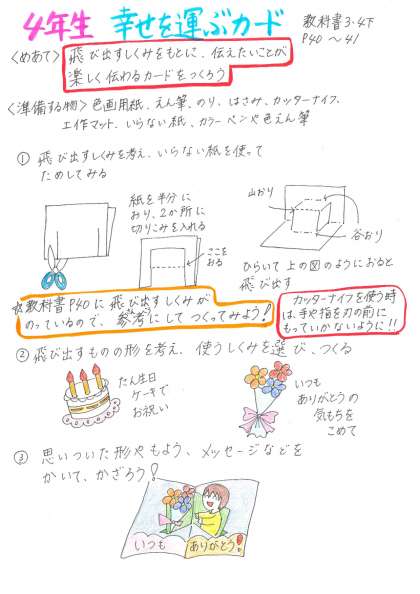 4年生 幸せを運ぶカード
教科書3・4下
P40〜41
<めあて> 飛び出すしくみをもとに、伝えたいことが
楽しく伝わるカードをつくろう
<準備する物> 色画用紙、えん筆、のり、はさみ、カッターナイフ、
工作マット、いらない紙、カラーペンや色えん筆
① 飛び出すしくみを考え、いらない紙を使って
ためしてみる
紙を半分に
おり、2か所に
切りこみを入れる
ここを
おる
山おり
谷おり
ひらいて上の図のようにおると
飛び出す
☆教科書P40に飛び出すしくみが
のっているので、参考にしてつくってみよう!
さんこう
カッターナイフを使う時
は、手や指を刃の前に
もっていかないように!!
② 飛び出すものの形を考え、使うしくみを選び、つくる
たん生日
ケーキで
お祝い
いつも
ありがとうの
気もちを
こめて
③ 思いついた形やもよう、メッセージなどを
かいて、かざろう!
いつも
ありがとう!